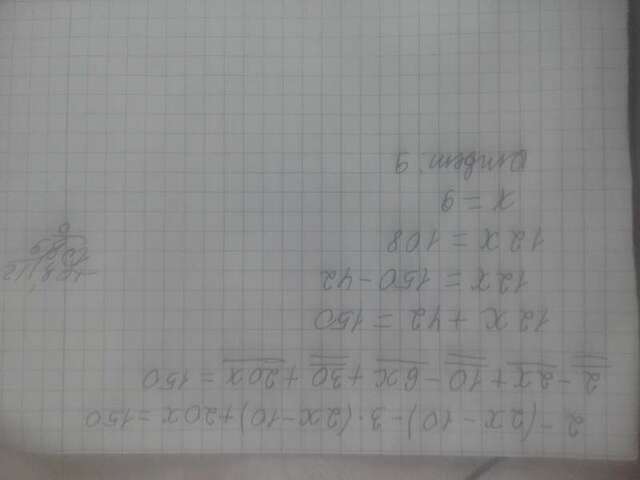 2-(2x-10)-3·(2x-10)+20x=150
2-2x+10-6x+30+20x=150
12x+42=150
12x=150-42
12x=108
x=9
Ответ: 9